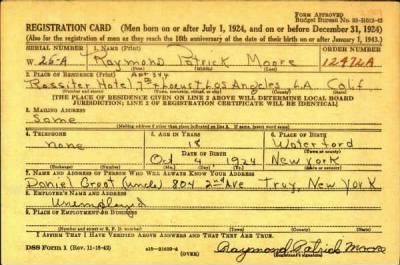 FORM APPROVED
Budget Bureau No. 33-R012-42
REGISTRATION CARD—(Men born on or after July 1, 1924, and on or before December 31, 1924)
(Also for the registration of men as they reach the 18th anniversary of the date of their birth on or after January 1, 1943.)
SERIAL NUMBER 1. NAME (Print) ORDER NUMBER
W. 26-A Raymond Patrick Moore 12472A
2. PLACE OF RESIDENCE (Print)
Rossiter Hotel Los Angeles L.A. Calif
[THE PLACE OF RESIDENCE GIVEN ON LINE 2 ABOVE WILL DETERMINE LOCAL BOARD
JURISDICTION; LINE 2 OF REGISTRATION CERTIFICATE WILL BE IDENTICAL]
3. MAILING ADDRESS
Same
[Mailing address if other than place indicated on line 2. If same, insert word same]
4. TELEPHONE 5. AGE IN YEARS 6. PLACE OF BIRTH
none 18 Waterford
DATE OF BIRTH
Oct 4 1924 New York
7. NAME AND ADDRESS OF PERSON WHO WILL ALWAYS KNOW YOUR ADDRESS
Daniel Groot (uncle) 804 2nd Ave Troy, New York
8. EMPLOYER'S NAME AND ADDRESS
Unemployed
9. PLACE OF EMPLOYMENT OR BUSINESS
I AFFIRM THAT I HAVE VERIFIED ABOVE ANSWERS AND THAT THEY ARE TRUE.
DSS Form 1 (Rev. 11-16-42) (OVER) Raymond Patrick Moore